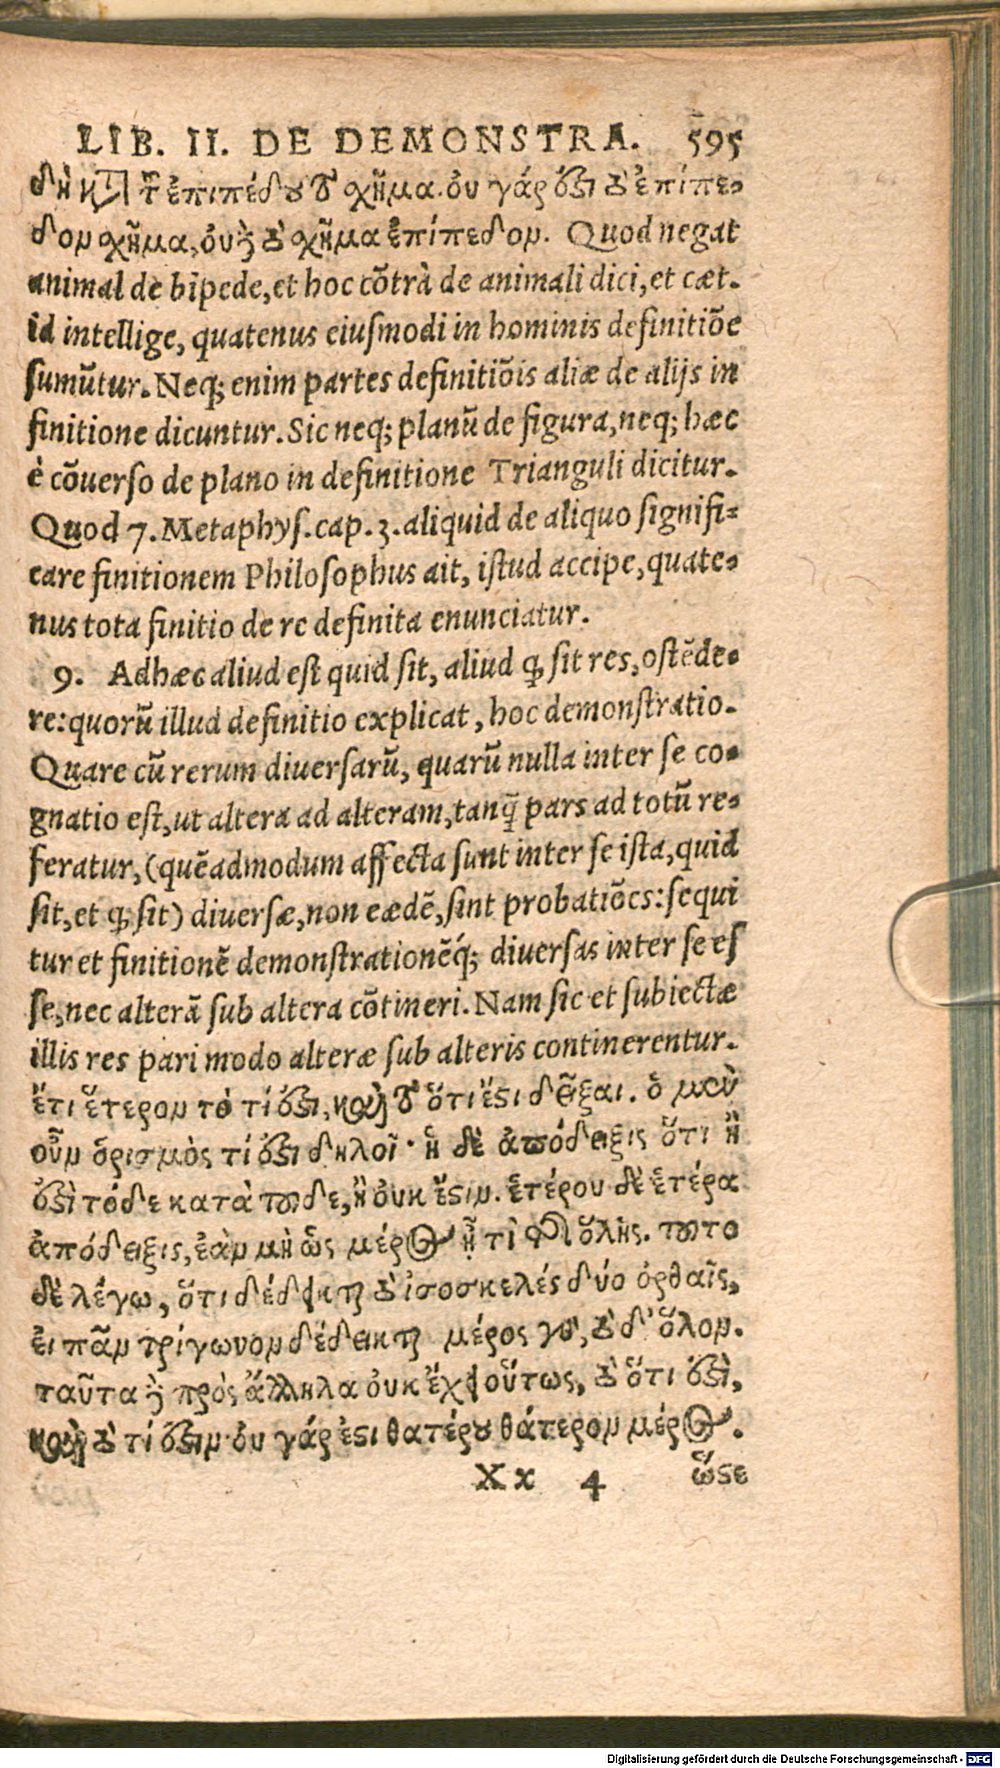 LIB. II. DE DEMONSTRA. 595
δὴ κατὰ τοῦ ἐπιπέδου τὸ σχῆμα. ὀυ γάρ ἐστι τὸ ἐπίπε-
δον σχῆμα, ὀυδὲ τὸ σχῆμα ἐπίπεδον. Quod negat
animal de bipede, et hoc cõtrà de animali dici, et cæt.
id intellige, quatenus eiuſmodi in hominis definitiõe
ſumũtur. Neq; enim partes definitiõis aliæ de alijs in
finitione dicuntur. Sic neq; planũ de figura, neq; hæc
è cõuerſo de plano in definitione Trianguli dicitur.
Quod 7. Metaphyſ. cap. 3. aliquid de aliquo ſignifi-
care finitionem Philoſophus ait, iſtud accipe, quate-
nus tota finitio de re definita enunciatur.
9. Adhæc aliud eſt quid ſit, aliud ꝙ ſit res, oſtẽde-
re: quorũ illud definitio explicat, hoc demonſtratio.
Quare cũ rerum diuerſarũ, quarũ nulla inter ſe co-
gnatio eſt, ut altera ad alteram, tanq̃ pars ad totũ re-
feratur, (quẽadmodum affecta ſunt inter ſe iſta, quid
ſit, et ꝙ ſit) diuerſæ, non eædẽ, ſint probatiões: ſequi
tur et finitionẽ demonſtrationẽq́; diuerſas inter ſe eſ
ſe, nec alterã ſub altera cõtineri. Nam ſic et ſubiectæ
illis res pari modo alteræ ſub alteris continerentur.
ἔτι ἕτερον τὸ τί ἐστι, καὶ τὸ ὅτι ἔστι δεῖξαι. ὁ μὲν
οὖν ὁρισμὸς τί ἐστι δηλοῖ· ἡ δὲ ἀπόδειξις ὅτι ἢ
ἐστὶ τόδε κατὰ τοῦδε, ἢ ὀυκ ἔστιν. ἑτέρου δὲ ἑτέρα
ἀπόδειξις, ἐὰν μὴ ὡς μέρος ᾖ τὶ τῆς ὅλης. τοῦτο
δὲ λέγω, ὅτι δέδεικται τὸ ἰσοσκελές δύο ὀρθαῖς,
ἐι πᾶν τρίγωνον δέδεικται μέρος γὰρ, τὸ δ' ὅλον.
ταῦτα δὲ πρὸς ἄλληλα ὀυκ ἔχει οὕτως, τὸ ὅτι ἐστὶ,
καὶ τὸ τί ἐστιν· ὀυ γάρ ἐστι θατέρου θάτερον μέρος.
Xx 4 ὥστε
Digitalisierung gefördert durch die Deutsche Forschungsgemeinschaft - DFG